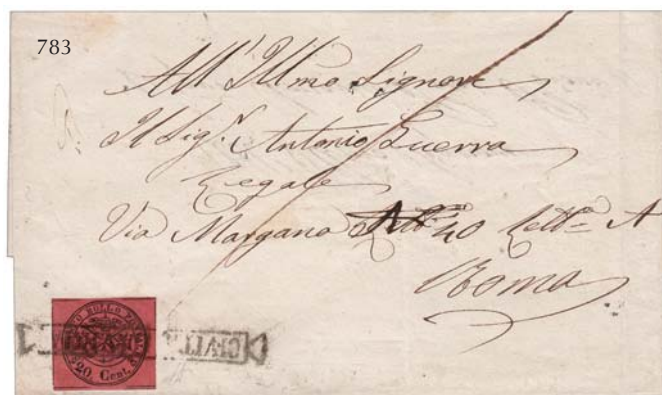 783
All' Illmo Signore
Il Sig.r Antonio Guerra
Legale
Via Margana 40 Lett.a A
Roma
20 Cent.